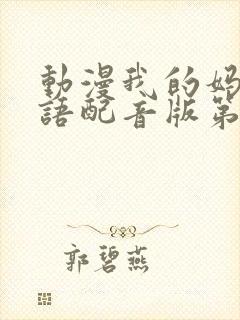 動漫我的媽
語配音版第
郭碧燕